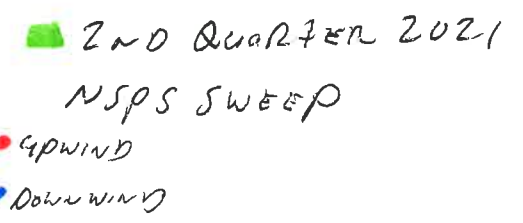 2ND QUARTER 2021
NSPS SWEEP
UPWIND
DOWNWIND